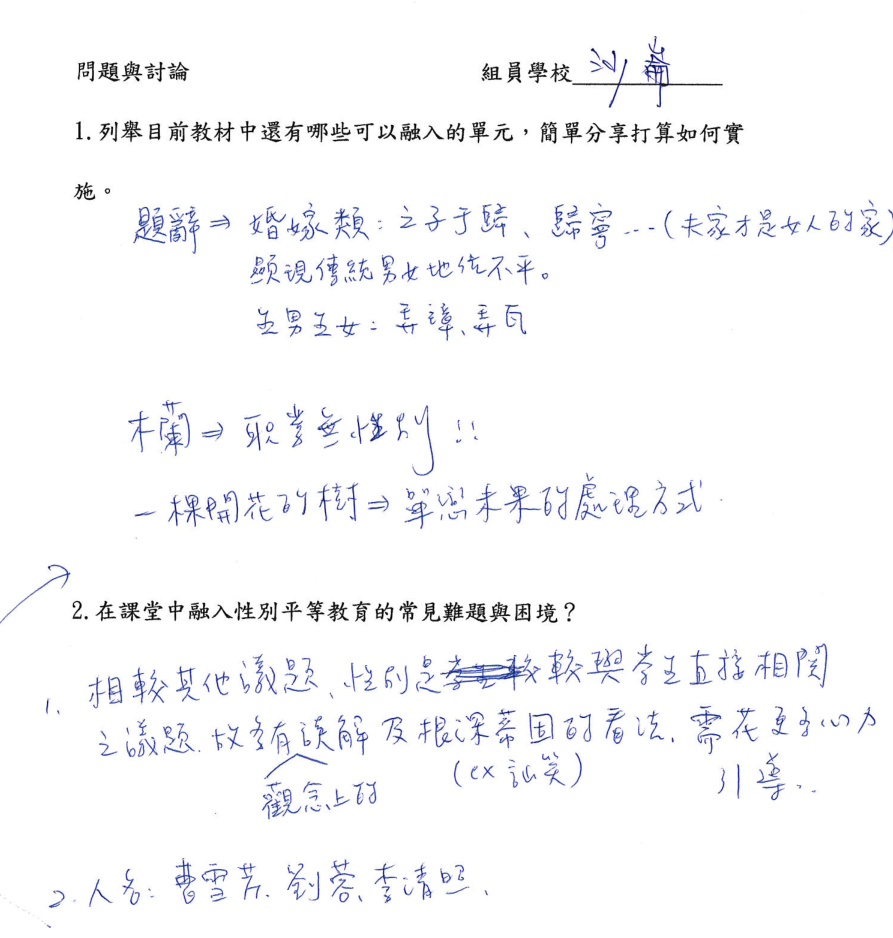 問題與討論 組員學校 沙崙
1. 列舉目前教材中還有哪些可以融入的單元，簡單分享打算如何實
施。
題辭⇒ 婚嫁類：之子于歸、歸寧…(夫家才是女人的家)
顯現傳統男女地位不平。
生男生女：弄璋、弄瓦
木蘭⇒ 职業無性別!!
一棵開花的樹⇒ 單戀未果的處理方式.
2. 在課堂中融入性別平等教育的常見難題與困境？
1. 相較其他議題、性別是較與學生直接相関
之議題. 故多有誤解及根深蒂固的看法. 需花更多心力
觀念上的 (ex 訕笑) 引導..
2. 人名: 曹雪芹. 劉蓉、李清照、